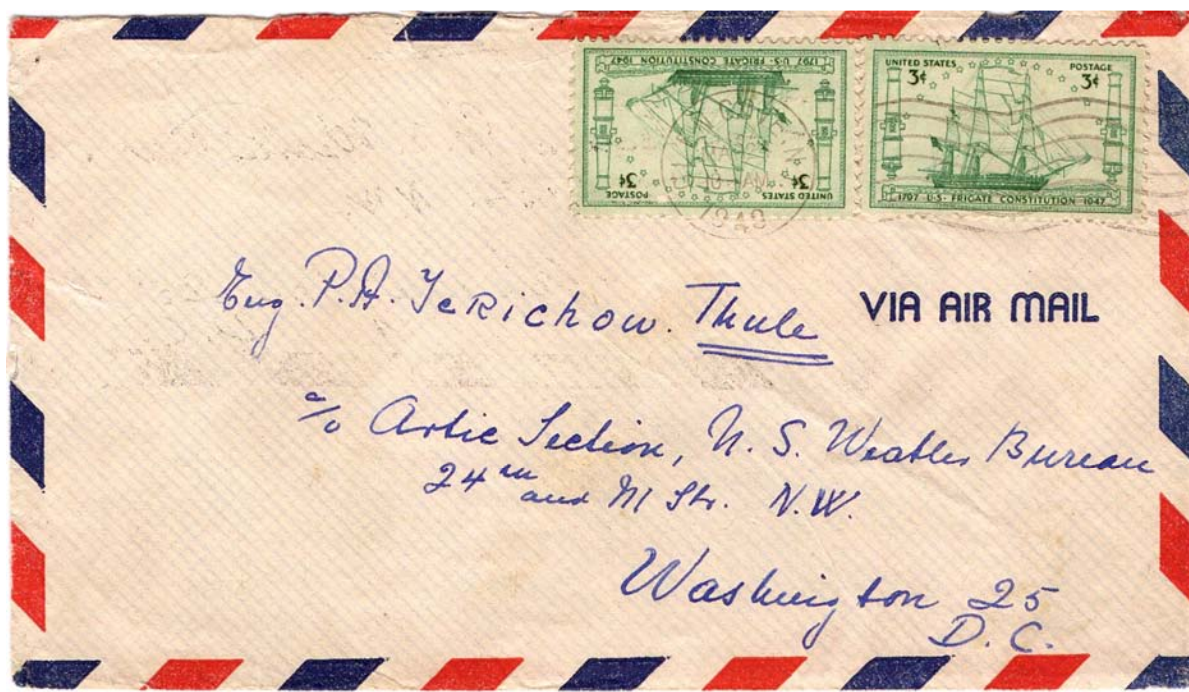 1797 U·S· FRIGATE CONSTITUTION 1947
3¢ 3¢
UNITED STATES POSTAGE
UNITED STATES POSTAGE
3¢ 3¢
1797 U·S· FRIGATE CONSTITUTION 1947
AM
1949
Eng. P.A. Jerichow. Thule
VIA AIR MAIL
c/o Artic Section, U. S. Weather Bureau
24th and M Str. N.W.
Washington 25
D.C.